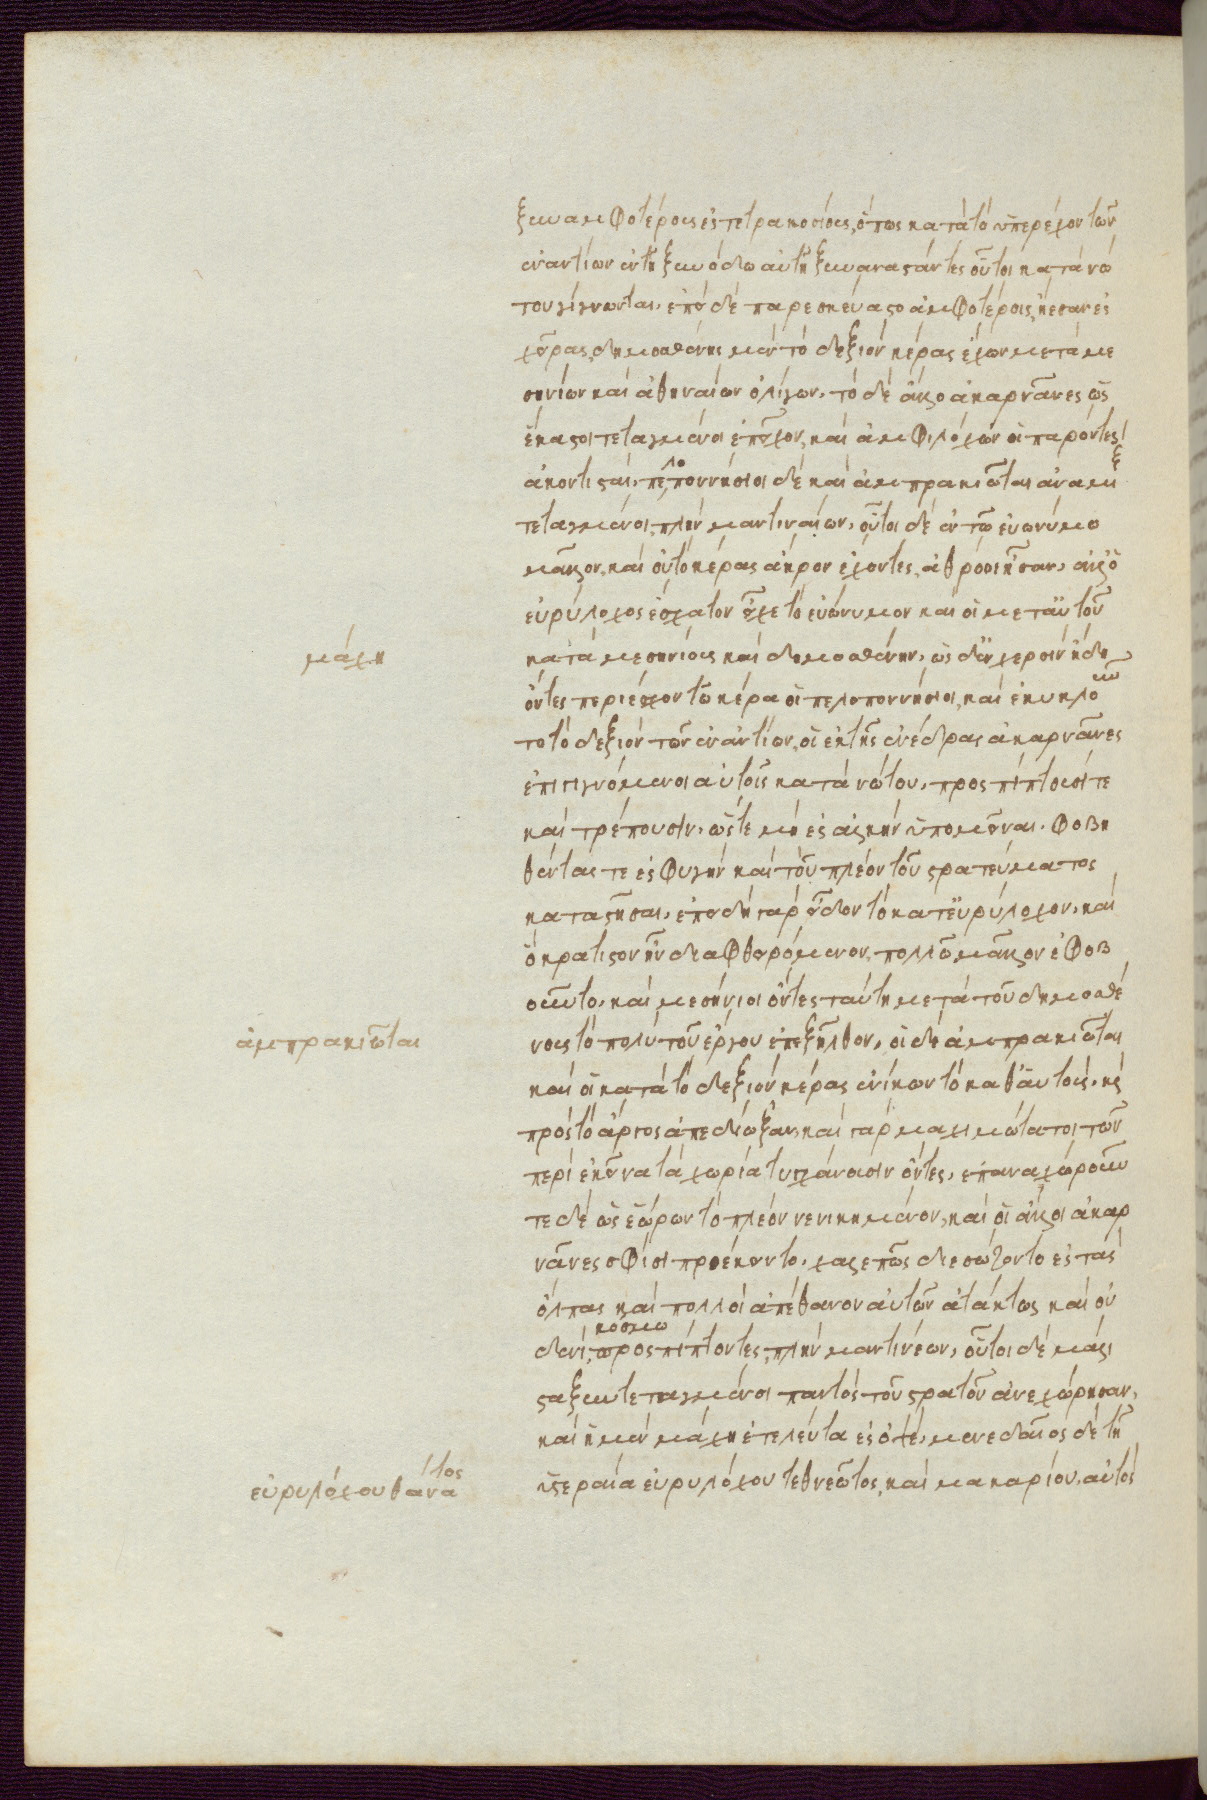 ξυναμφοτέρους ἐς τετρακοσίους, ὅπως κατὰ τὸ ὑπερέχον τῶν
ἐναντίων ἐν τῇ ξυνόδω αὐτῇ ξυναναστάντες οὗτοι κατὰ νώ
του γίγνωνται. ἐπεὶ δὲ παρεσκεύαστο ἀμφοτέροις, ᾔεσαν ἐς
χεῖρας, δημοσθένης μὲν τὸ δεξιὸν κέρας ἔχων μετὰ με
σηνίων καὶ ἀθηναίων ὀλίγων. τὸ δὲ ἄλλο ἀκαρνᾶνες ὡς
ἕκαστοι τεταγμένοι ἐπεῖχον, καὶ ἀμφιλόχων οἱ παρόντες
ἀκοντισταί. πελοποννήσιοι δὲ καὶ ἀμπρακιῶται ἀναμὶξ
τεταγμένοι, πλὴν μαντιναίων. οὗτοι δὲ ἐν τῶ εὐωνύμο
μᾶλλον, καὶ οὐ τὸ κέρας ἄκρον ἔχοντες, ἀθρόοι ἦσαν. ἀλλ' ὁ
εὐρύλοχος ἔσχατον εἶχε τὸ εὐώνυμον καὶ οἱ μετ αὐτοῦ
μάχη
κατὰ μεσηνίους καὶ δημοσθένην. ὡς δ' ἐν χερσὶν ἤδη
ὄντες περιέσχον τῶ κέρα οἱ πελοποννήσιοι, καὶ ἐκυκλοῦν
το τὸ δεξιὸν τῶν ἐναντίων, οἱ ἐκ τῆς ἐνέδρας ἀκαρνᾶνες
ἐπιγιγνόμενοι αὐτοῖς κατὰ νώτου, προσπίπτουσί τε
καὶ τρέπουσιν, ὥστε μὴ ἐς ἀλκὴν ὑπομεῖναι. φοβη
θέντας τε ἐς φυγὴν καὶ τοῦ πλέον τοῦ στρατεύματος
καταστῆσαι. ἐπειδὴ γὰρ εἶδον τὸ κατ εὐρύλοχον, καὶ
ὃ κράτιστον ἦν διαφθειρόμενον, πολλῶ μᾶλλον ἐφοβ
οῦντο. καὶ μεσήνιοι ὄντες ταύτη μετὰ τοῦ δημοσθέ
ἀμπρακιῶται
νους τὸ πολὺ τοῦ ἔργου ἐπεξῆλθον. οἱ δὲ ἀμπρακιῶται
καὶ οἱ κατὰ τὸ δεξιὸν κέρας ἐνίκων τὸ καθ' αὑτούς. κὲ
πρὸς τὸ ἄργος ἀπεδίωξαν, καὶ γὰρ μαχιμώτατοι τῶν
περὶ ἐκεῖνα τὰ χωρία τυγχάνουσιν ὄντες. ἐπαναχώρουν
τε δὲ ὡς ἑώρων τὸ πλέον νενικημένον, καὶ οἱ ἄλλοι ἀκαρ
νᾶνες σφίσι προσέκειντο. χαλεπῶς διεσώζοντο ἐς τὰς
ὄλπας καὶ πολλοὶ ἀπέθανον αὐτῶν ἀτάκτως καὶ οὐ
δενὶ κόσμω προσπίπτοντες, πλὴν μαντινέων, οὗτοι δὲ μάλι
στα ξυντεταγμένοι παντὸς τοῦ στρατοῦ ἀνεχώρησαν.
καὶ ἡ μὲν μάχη ἐτελεύτα ἐς ὀψέ. μενεδαῖος δὲ τῇ
εὐρυλόχου θάνατος
ὑστεραία εὐρυλόχου τεθνεῶτος, καὶ μακαρίου, αὐτὸς